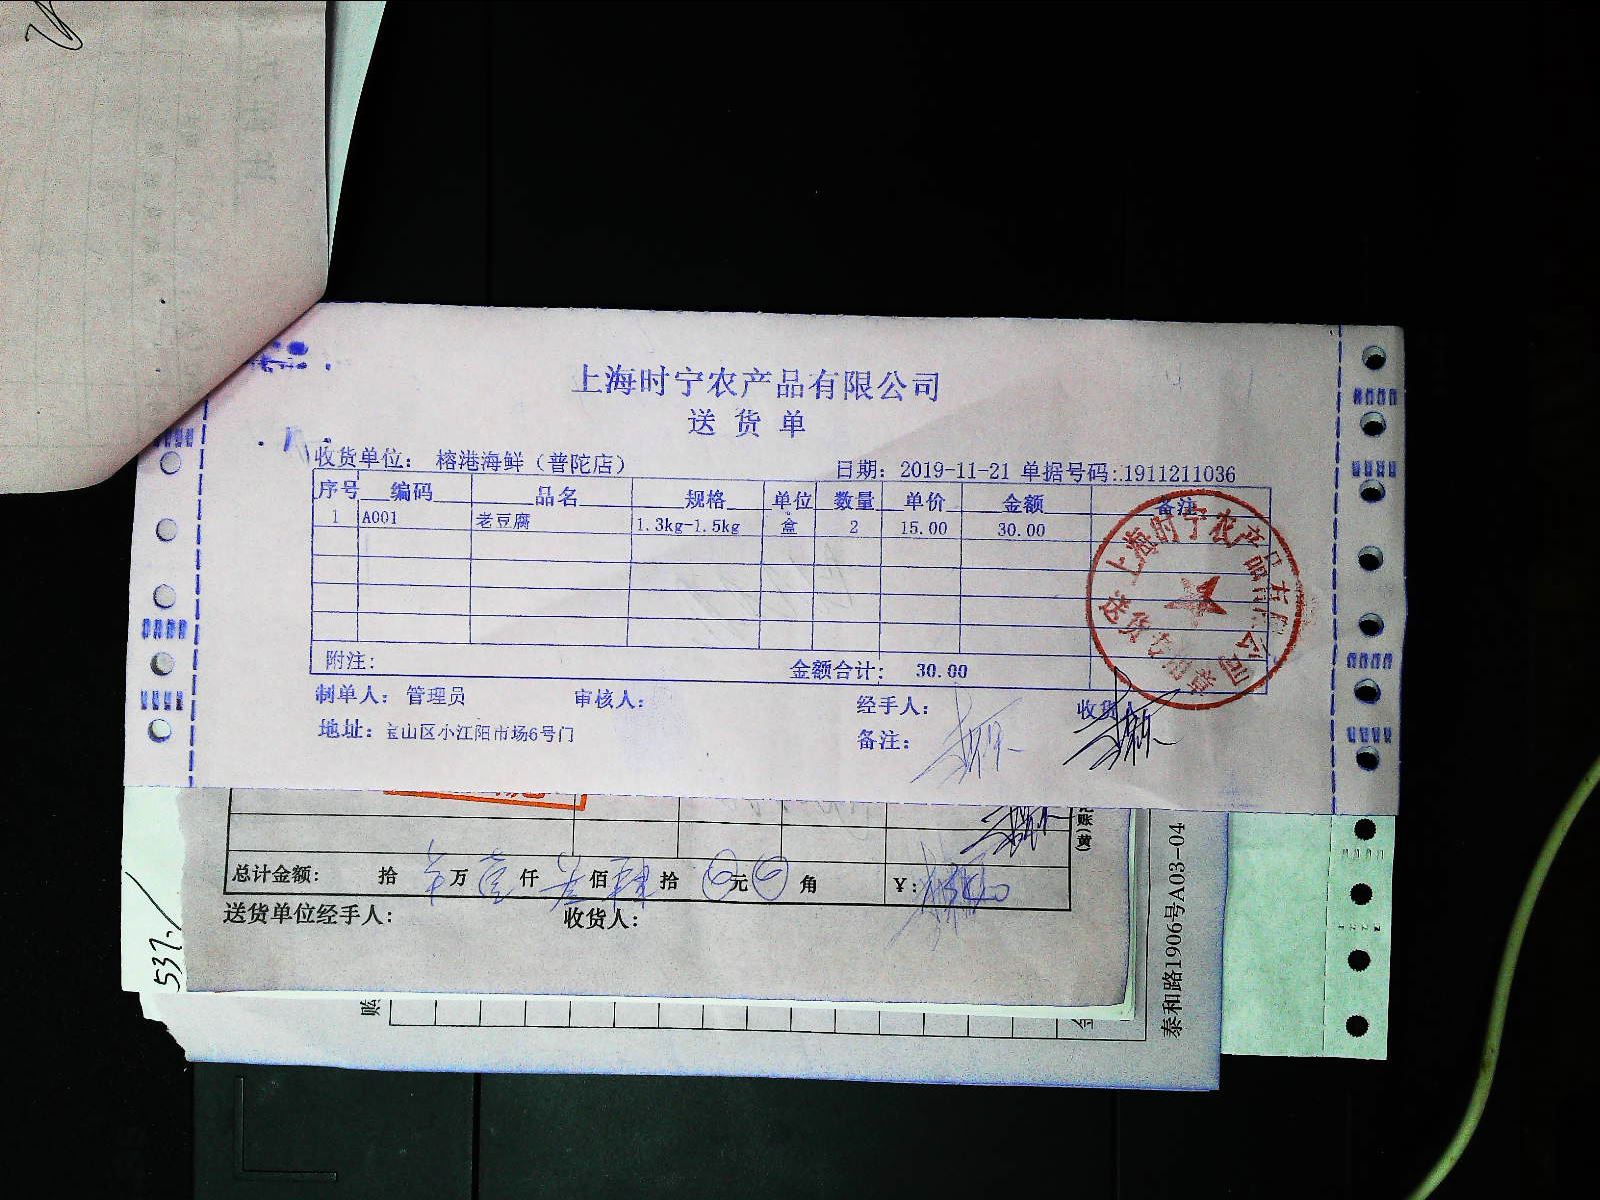 上海时宁农产品有限公司
送货单
收货单位： 榕港海鲜（普陀店） 日期：2019-11-21 单据号码：1911211036
序号 编码 品名 规格 单位 数量 单价 金额 备注
1 A001 老豆腐 1.3kg-1.5kg 盒 2 15.00 30.00
附注： 金额合计： 30.00
制单人：管理员 审核人： 经手人： 收货
地址：宝山区小江阳市场6号门 备注：
上海时宁农产品有限公司
送货专用章
总计金额： 拾 万 仟 佰 拾 元 角 ¥：
送货单位经手人： 收货人：
537./
泰和路1906号A03-04